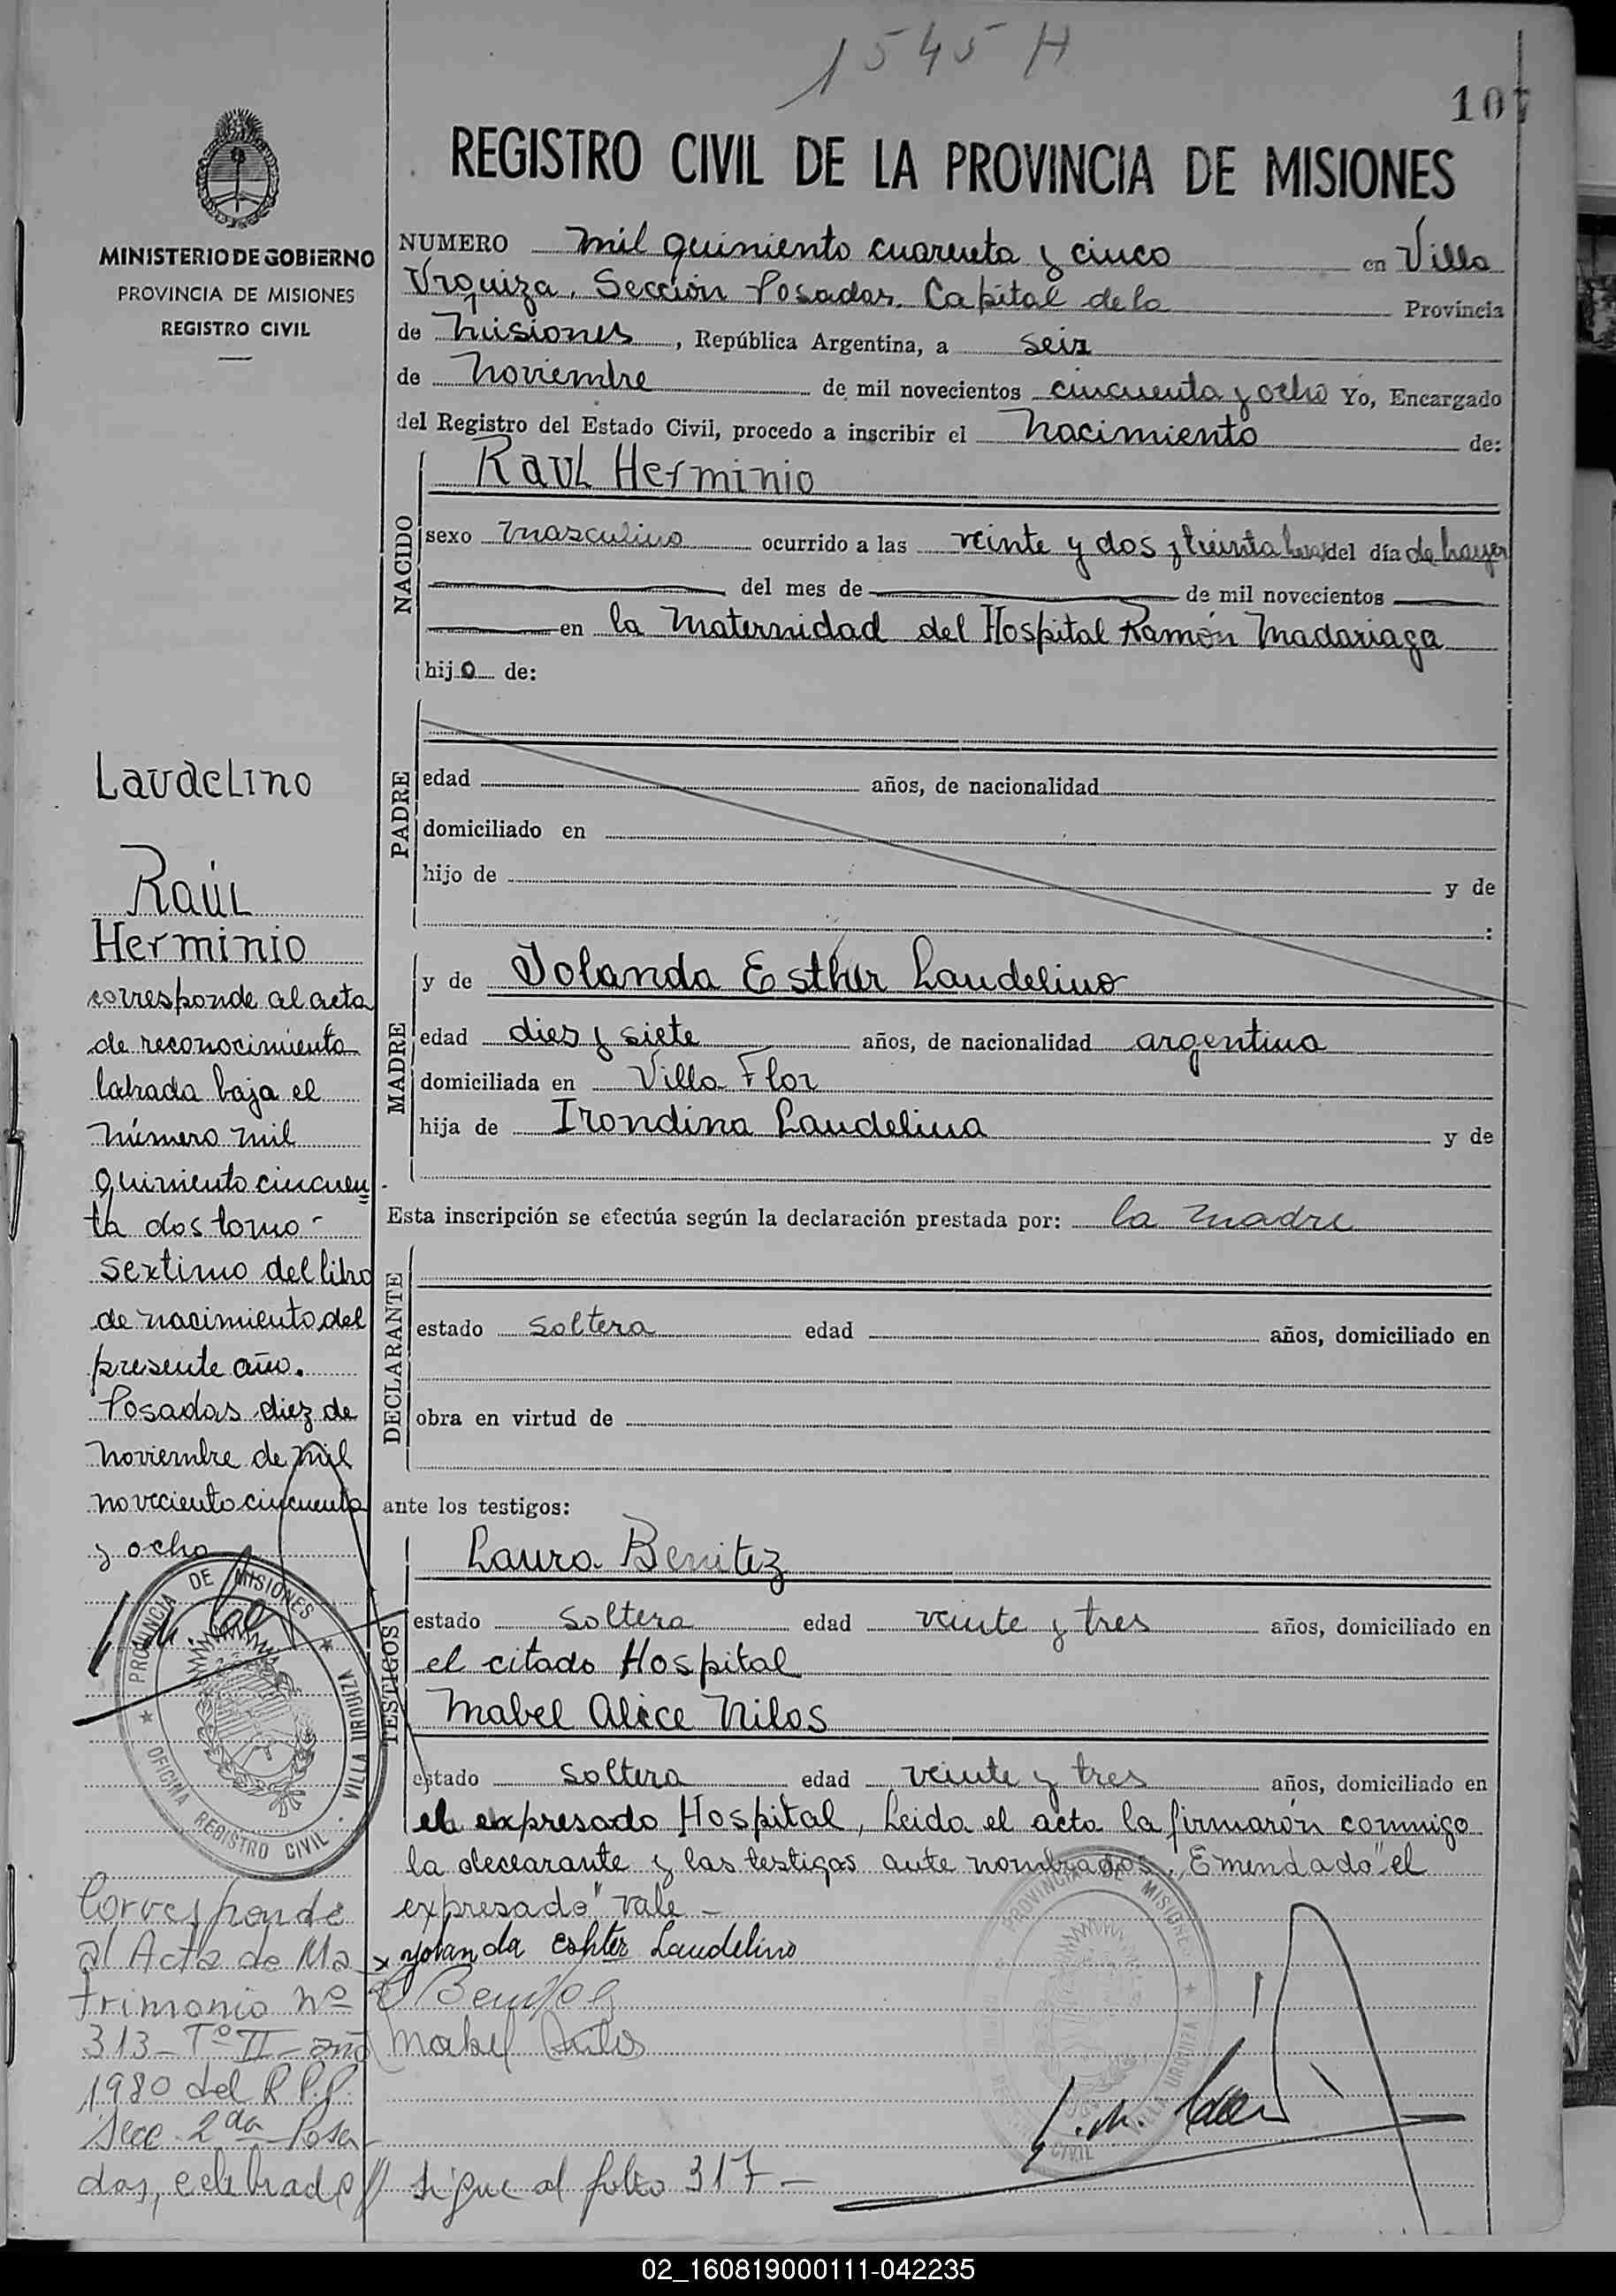 1545 H
107
REGISTRO CIVIL DE LA PROVINCIA DE MISIONES
MINISTERIO DE GOBIERNO
PROVINCIA DE MISIONES
REGISTRO CIVIL
NUMERO mil quiniento cuarenta y cinco en Villa
Urquiza, Sección Posadas. Capital de la Provincia
de Misiones, República Argentina, a seis
de Noviembre de mil novecientos cincuenta y ocho Yo, Encargado
del Registro del Estado Civil, procedo a inscribir el Nacimiento de:
NACIDO
Raul Herminio
sexo masculino ocurrido a las veinte y dos y treinta del día de hayer
del mes de de mil novecientos
en la Maternidad del Hospital Ramón Madariaga
hijo de:
PADRE
edad años, de nacionalidad
domiciliado en
hijo de y de
:
MADRE
y de Yolanda Esther Laudelino
edad dies y siete años, de nacionalidad argentina
domiciliada en Villa Flor
hija de Irondina Laudelina y de
Esta inscripción se efectúa según la declaración prestada por: la madre
DECLARANTE
estado soltera edad años, domiciliado en
obra en virtud de
ante los testigos:
TESTIGOS
Laura Benitez
estado soltera edad veinte y tres años, domiciliado en
el citado Hospital
Mabel Alice Nilos
estado soltera edad veinte y tres años, domiciliado en
el expresado Hospital, Leida el acta la firmarón conmigo
la declarante y las testigos ante nombrados, Emendado "el
expresado" vale -
x yolanda Eshter Laudelino
Mabel
sigue al folio 317 -
Laudelino
Raúl
Herminio
corresponde al acta
de reconocimiento
labrada bajo el
número mil
quiniento cincuen
ta dos tomo -
sextimo del libro
de nacimiento del
presente año.
Posadas diez de
noviembre de mil
noveciento cincuenta
y ocho
PROVINCIA DE MISIONES
OFICINA REGISTRO CIVIL - VILLA URQUIZA
Corresponde
al Acta de Ma
trimonio nº
313 - Tº II - año
1980 del R.P.P.
Secc. 2da Posa
das, celebrado //
PROVINCIA DE MISIONES
CIVIL VILLA URQUIZA
02_160819000111-042235